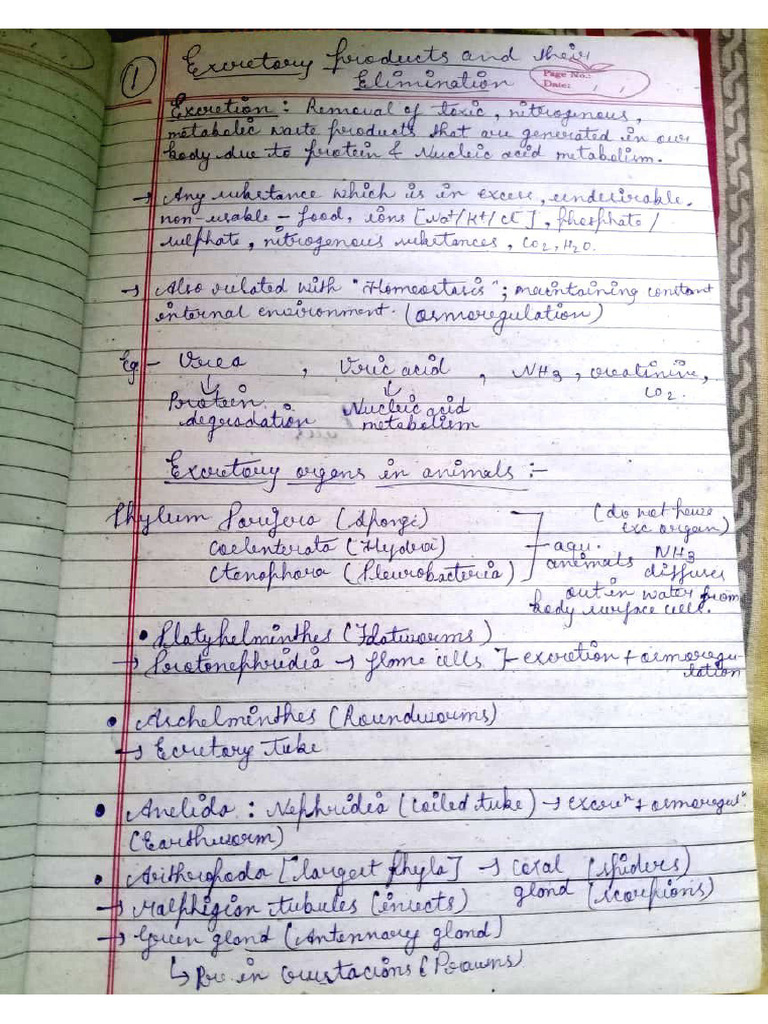 1
Excretory products and their
Elimination
Page No.:
Date:
Excretion : Removal of toxic, nitrogenous,
metabolic waste products that are generated in our
body due to protein & Nucleic acid metabolism.
→ Any substance which is in excess, undesirable.
non-usable – food, ions [Na+/K+/Cl-], phosphate/
sulphate, nitrogenous substances, CO2, H2O.
→ Also related with "Homeostasis"; maintaining constant
internal environment. (osmoregulation)
Eg:- Urea , Uric acid , NH3, creatinine,
CO2.
↓ ↓
Protein Nucleic acid
degradation metabolism
Excretory organs in animals :-
Phylum Porifera (Sponge) (do not have
exc organ)
Coelenterata (Hydra) – aqu.
animals NH3
Ctenophora (Pleurobacteria) diffuses
out in water from
body surface cell.
• Platyhelminthes (Flatworms)
→ Protonephridia → flame cells } – excretion + osmoregu-
lation
• Aschelminthes (Roundworms)
→ Ecretory tube
• Anelida : Nephridia (Coiled tube) → excren + osmoregun.
(Earthworm)
• Arthropoda [largest phyla] → coxal (spiders)
gland (scorpions)
→ Malphigian tubules (insects)
→ Green gland (Antennary gland)
↳ in crustacions (Prawns)